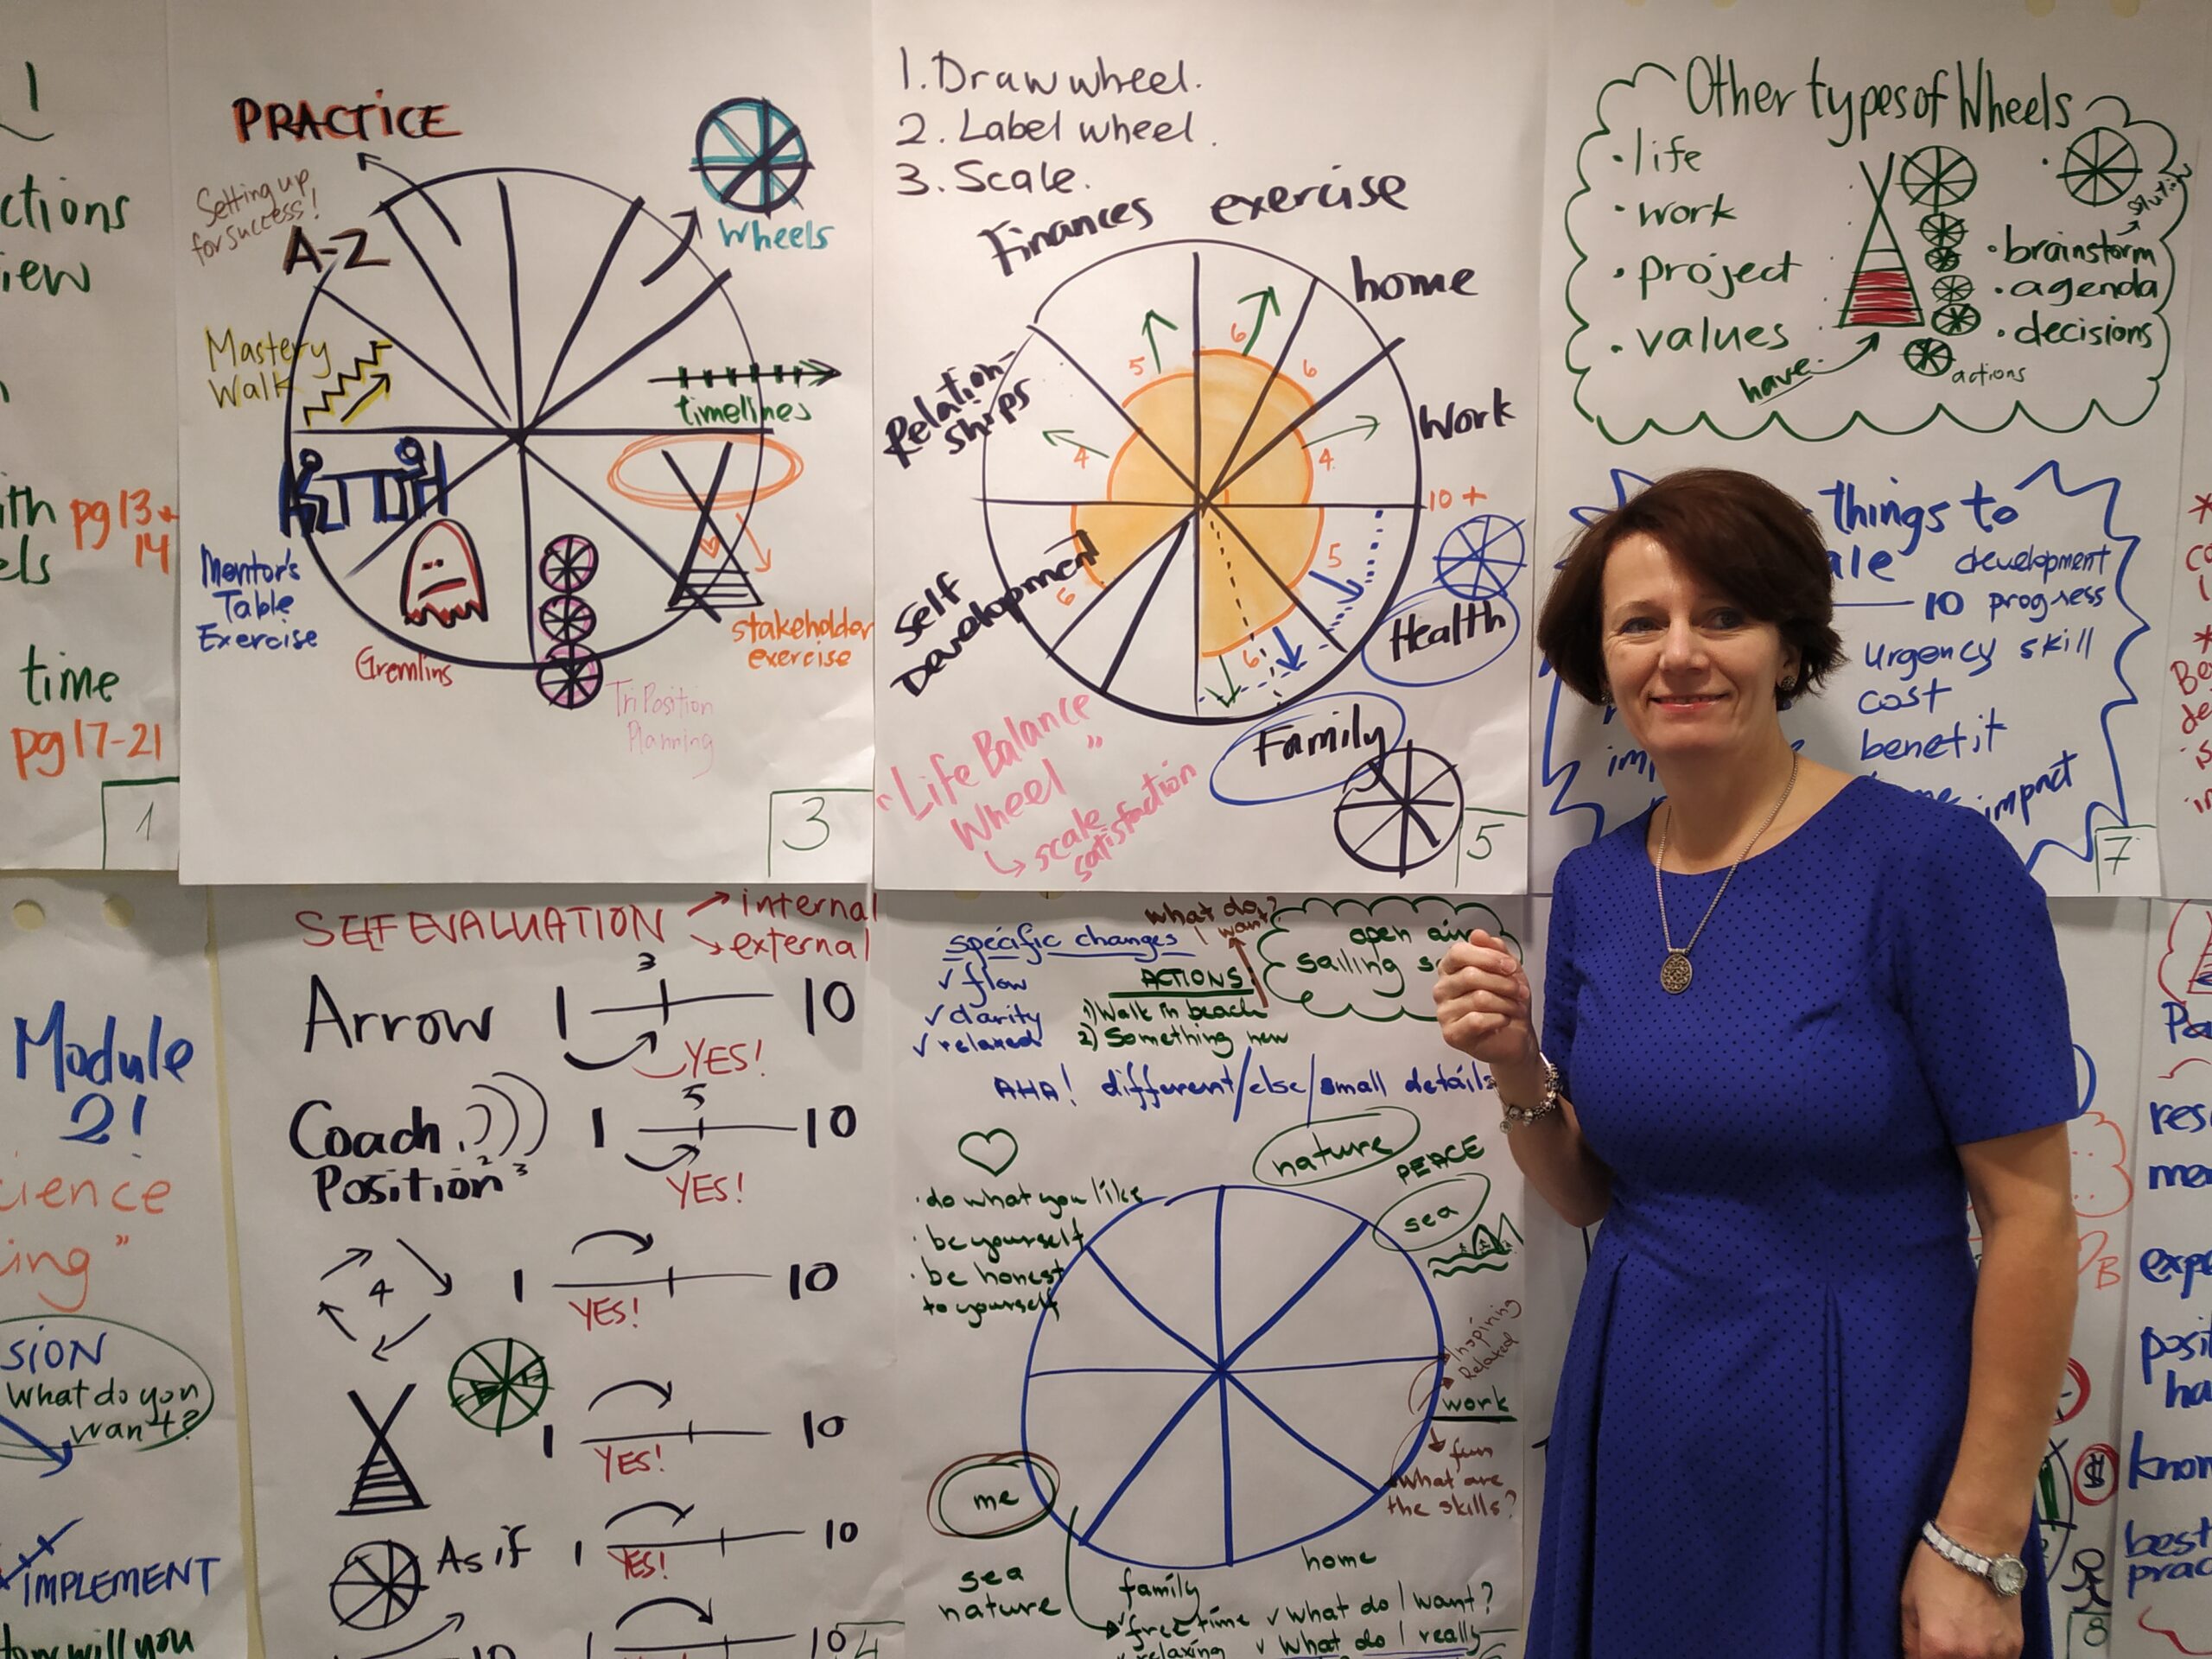 1
ctions
iew
ith pg 13+
14
els
time
pg 17-21
1
PRACTICE
Setting up
for success!
A-Z
Wheels
Mastery
Walk
timelines
Mentor's
Table
Exercise
Gremlins
TriPosition
Planning
stakeholder
exercise
3
1. Draw wheel.
2. Label wheel.
3. Scale.
Finances
exercise
home
Relation-
ships
Work
5
6
6
4
4
10+
5
6
6
Self
Development
Health
Family
"Life Balance
Wheel"
scale
satisfaction
5
Other types of Wheels
• life
• work
• project
• values
have
• brainstorm
• agenda
• decisions
actions
things to
ale
development
10 progress
urgency skill
cost
benefit
impact
7
Module
2!
cience
ing"
SION
What do you
want?
IMPLEMENT
How will you
SELF EVALUATION
internal
external
Arrow 1 3 10
YES!
Coach
Position 2 3
1 5 10
YES!
4 1 10
YES!
1 10
YES!
As if 1 10
YES!
10 1 10
4
specific changes
✓ flow
✓ clarity
✓ relaxed
what do
I want?
ACTIONS:
1) Walk in beach
2) Something new
open air
sailing s
AHA! different/else/small details
nature
PEACE
sea
• do what you like
• be yourself
• be honest
to yourself
Inspiring
Relaxed
work
fun
what are
the skills?
me
sea
nature
family
✓ free time
✓ relaxing
home
✓ what do I want?
✓ what do I really
B
8
res
me
expe
posi
ha
know
best
prac